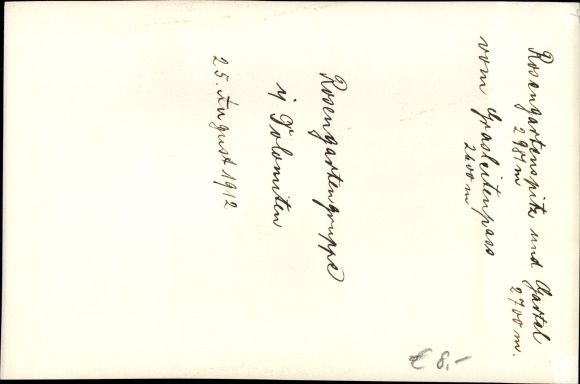 Rosengartenspitze und Gartel
2981 m. 2700 m.
vom Grasleitenpass
2600 m
Rosengartengruppe
i/ Dolomiten
25. August 1912
€ 8.-